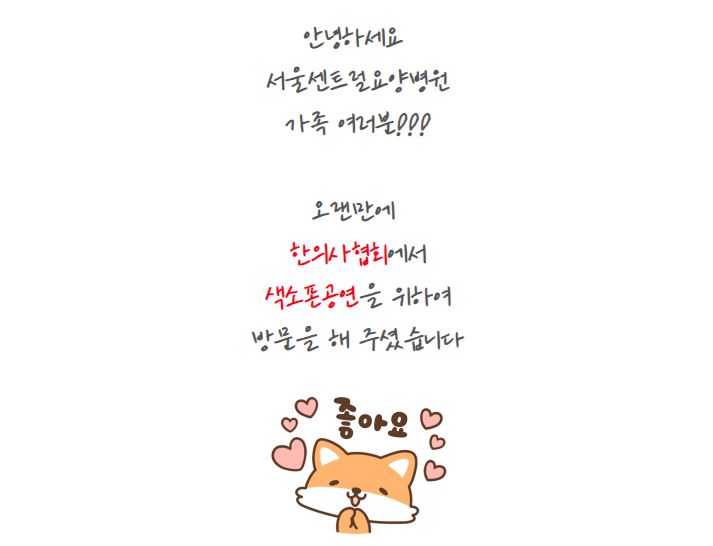 안녕하세요
서울센트럴요양병원
가족 여러분!!!
오랜만에
한의사협회에서
색소폰공연을 위하여
방문을 해 주셨습니다
좋아요